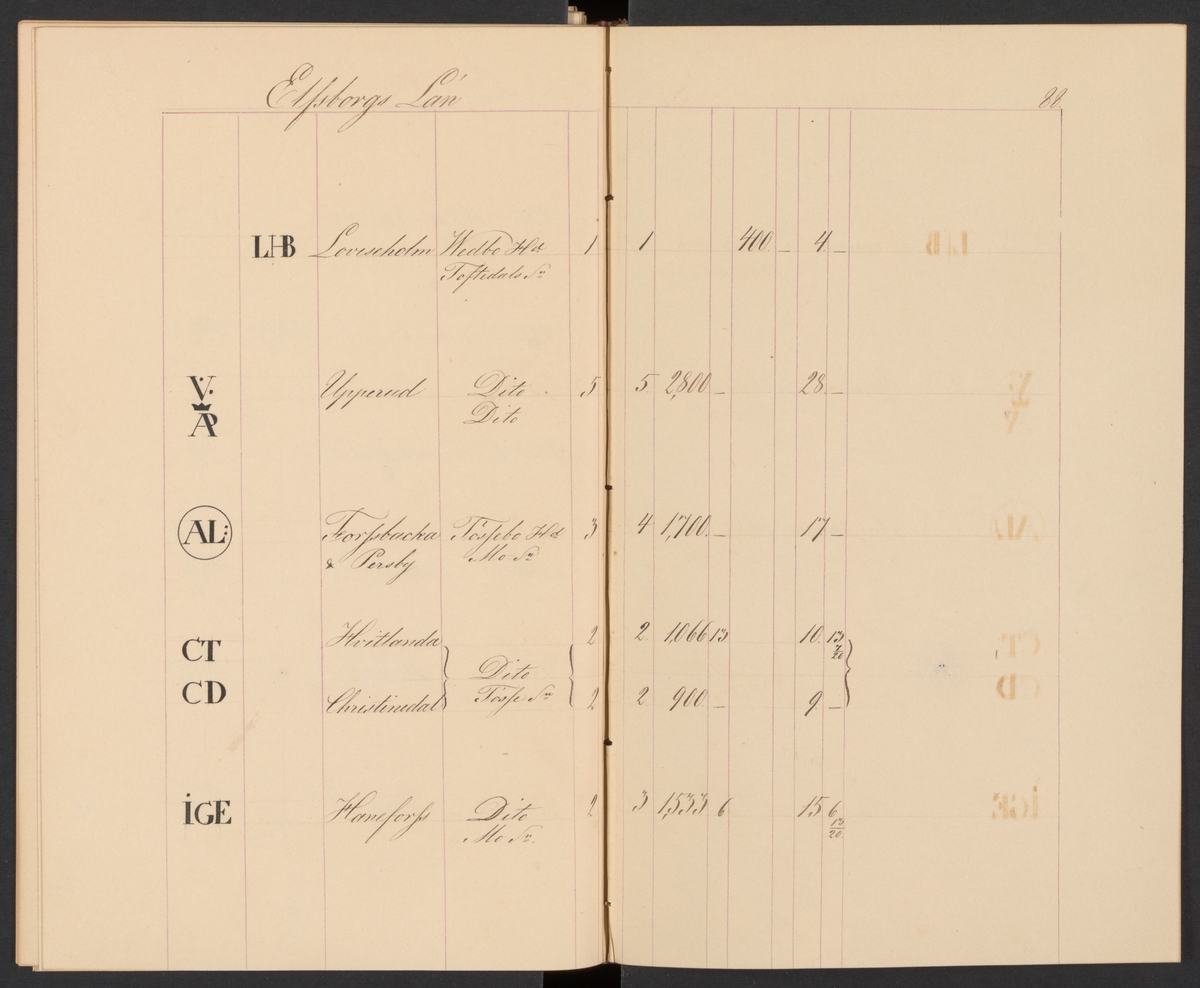 Elfsborgs Län
88.
LHB Loviseholm Wedbo Hd 1 1 400 _ 4 _
Toftedals Sn
V. Upperud Dito 5 5 2,800 _ 28 _
AP Dito
AL: Forssbacka Tössebo Hd 3 4 1,700 _ 17 _
& Persby Mo Sn
Hvitlanda 2 2 1,066 13 10 13 7/20
CT
Dito
CD Christinedal Tösse Sn 2 2 900 _ 9 _
IGE Haneforss Dito 2 3 1,533 6 15 6 13/20
Mo Sn.